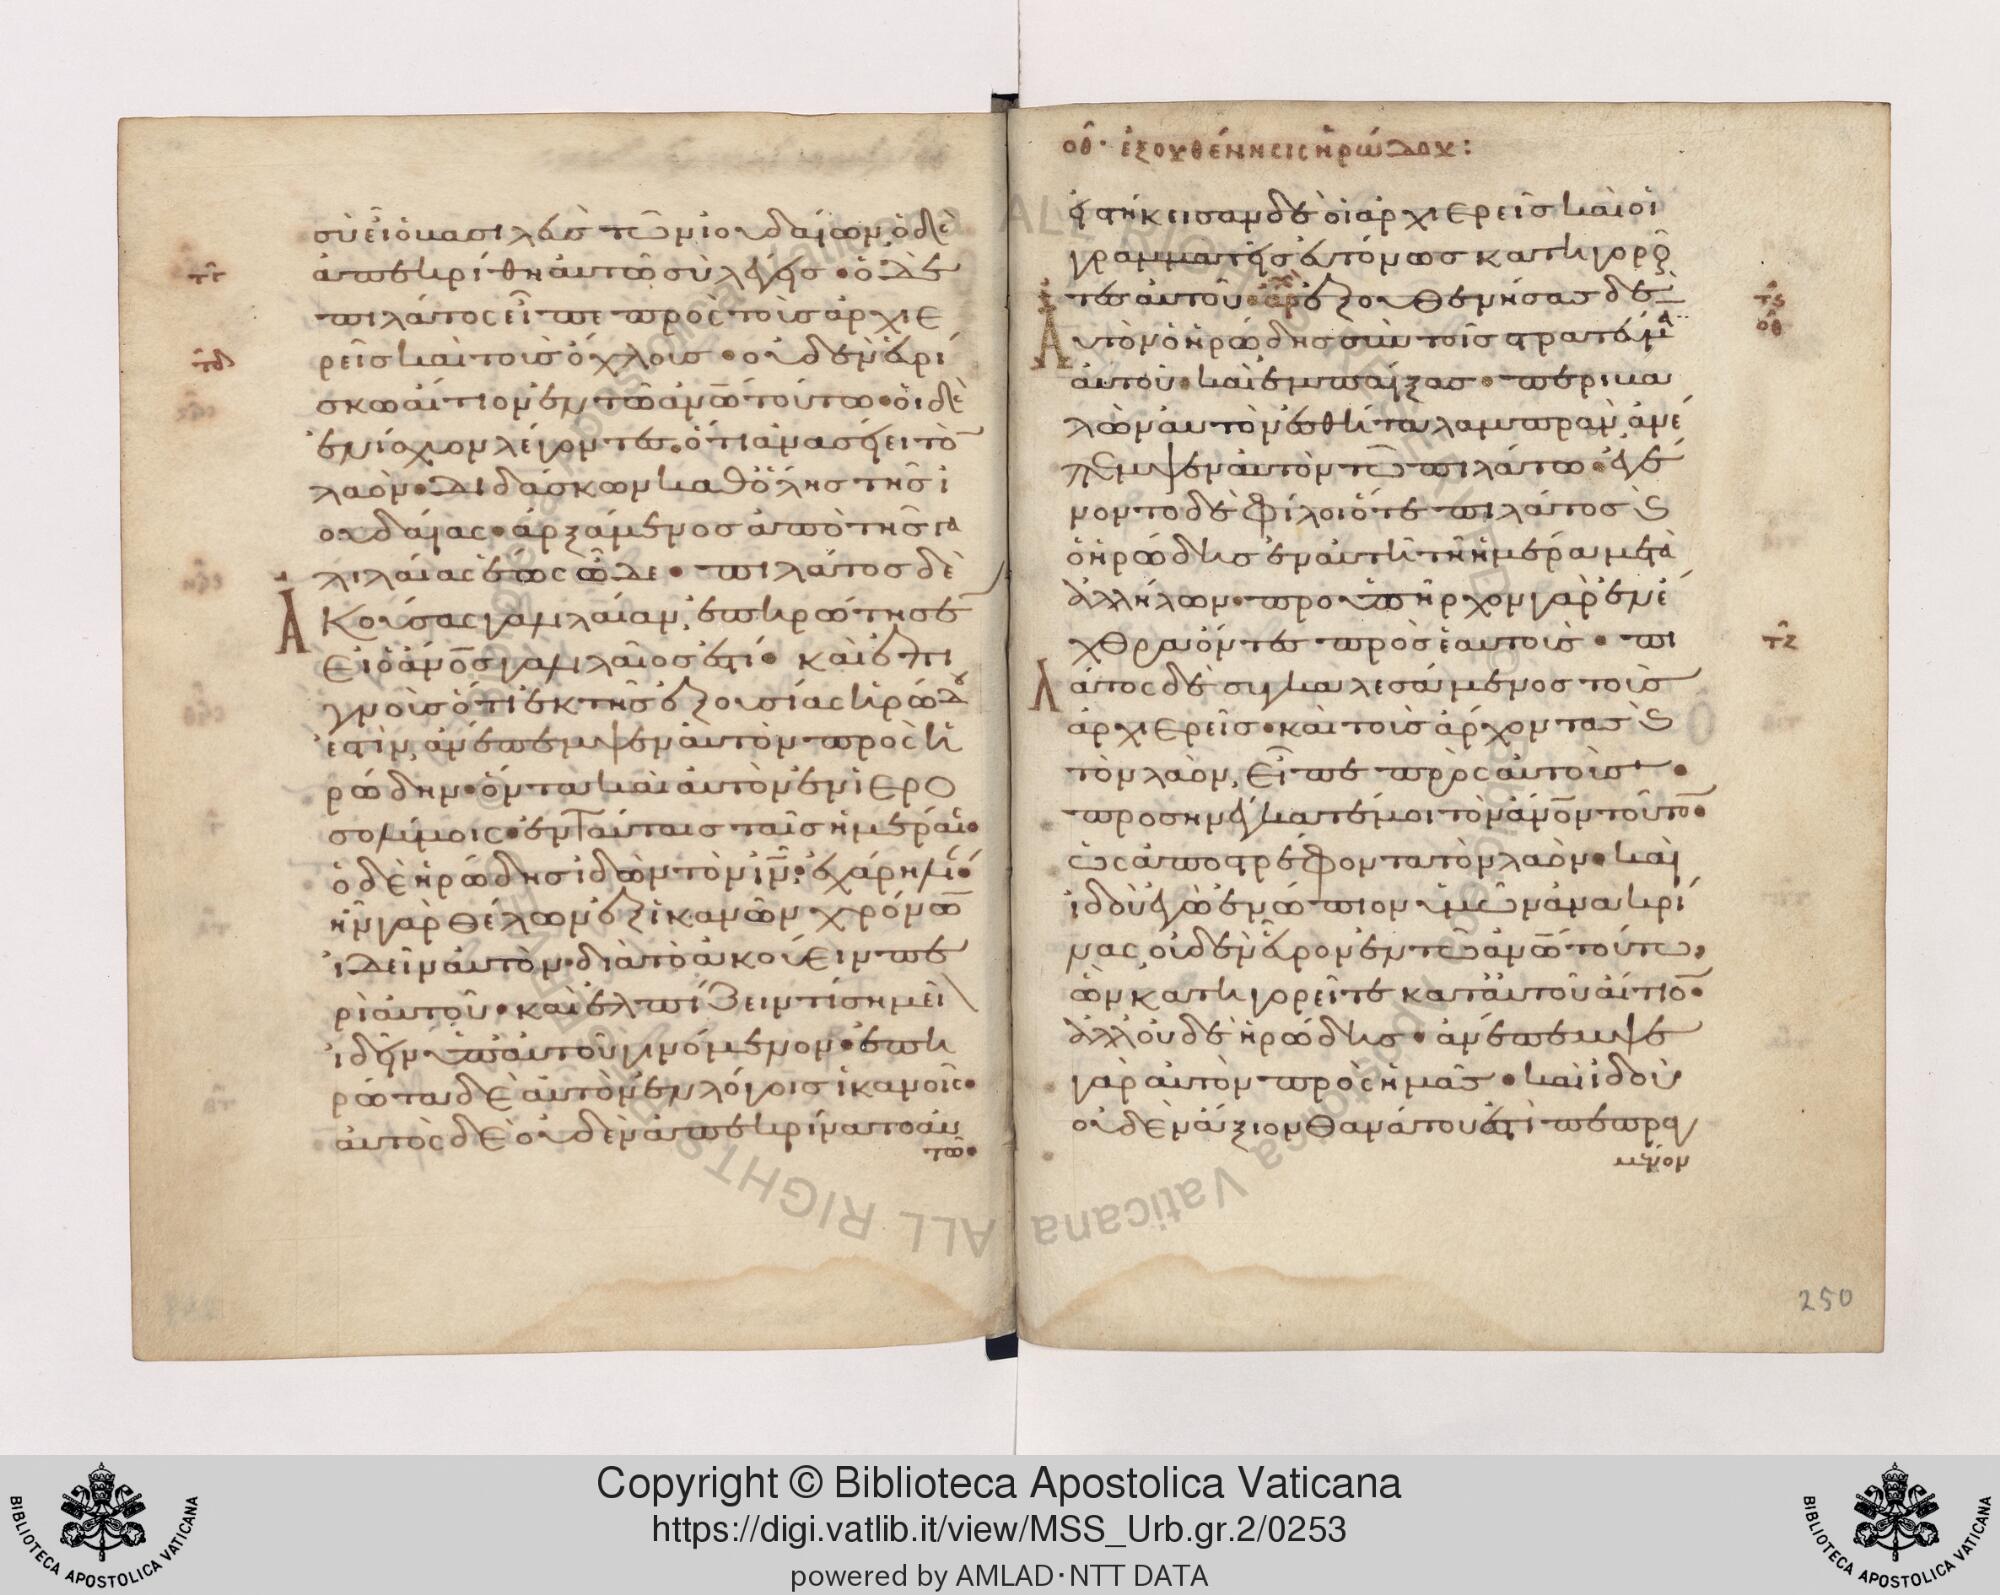 σὺ εἶ ὁ βασιλεὺς τῶν ἰουδαίων· ὁ δὲ
τγ ἀπεκρίθη αὐτῶ σὺ λέγεις· ὁ δὲ
πιλάτος εἶπε πρὸς τοὺς ἀρχιε
τδ ρεῖς καὶ τοὺς ὄχλους· οὐδὲν εὑρί
σκω αἴτιον ἐν τῶ ἀνω τούτω· οἱ δὲ
ἐπίσχυον λέγοντες· ὅτι ἀνασείει τὸ
λαὸν· διδάσκων καθόλης τῆς ἰ
ουδαίας· ἀρξάμενος ἀπὸ τῆς γα
λιλαίας ἕως ὧδε· πιλάτος δὲ
Ἀκούσας γαλιλαίαν, ἐπηρώτησε
εἰ ὁ ἄνος γαλιλαῖός ἐστι· καὶ ἐπι
γνοὺς ὅτι ἐκ τῆς ἐξουσίας ἡρώδου
ἐστὶν, ἀνέπεμψεν αὐτὸν πρὸς ἡ
ρώδην· ὄντα καὶ αὐτὸν ἐν ἱερο
σολύμοις· ἐν ταύταις ταῖς ἡμέραις·
ὁ δὲ ἡρώδης ἰδὼν τὸν ιν· ἐχάρη λί·
ἦν γὰρ θέλων ἐξ ἱκανῶν χρόνω
ἰδεῖν αὐτὸν· διὰ τὸ ἀκούειν πε
ρὶ αὐτοῦ· καὶ ἐλπίζειν τί σημεῖ
ἰδεῖν ὑπ αὐτοῦ γινόμενον· ἐπη
ρώτα δὲ αὐτὸν ἐν λόγοις ἱκανοῖς·
αὐτὸς δὲ οὐδὲν ἀπεκρίνατο αὐ
τῶ·
οθ· ἐξουθένησις ἡρώδου:
εἱστήκεισαν δὲ οἱ ἀρχιερεῖς καὶ οἱ
γραμματεῖς εὐτόνως κατηγορου
τες αὐτοῦ· ἐξουθενήσας δὲ τϛ
Αὐτὸν ὁ ἡρώδης σὺν τοῖς στρατεύμα οθ
αὐτοῦ· καὶ ἐμπαίξας· περιβα
λὼν αὐτὸν ἐσθῆτα λαμπρὰν, ἀνέ
πεμψεν αὐτὸν τῶ πιλάτω· ἐγέ
νοντο δὲ φίλοι ὅ τε πιλάτος καὶ
ὁ ἡρώδης ἐν αὐτῆ τῆ ἡμέρα μετὰ
ἀλλήλων· προϋπῆρχον γὰρ ἐν ἔ
χθρα ὄντες πρὸς ἑαυτούς· πι τζ
λάτος δὲ συγκαλεσάμενος τοὺς
ἀρχιερεῖς· καὶ τοὺς ἄρχοντας καὶ
τὸν λαὸν, εἶπε πρὸς αὐτοὺς·
προσηνέγκατέ μοι τὸν ἄνον τοῦτο·
ὡς ἀποστρέφοντα τὸν λαὸν· καὶ
ἰδοὺ ἐγὼ ἐνώπιον ὑμῶν ἀνακρί
νας, οὐδὲν εὗρον ἐν τῶ ἀνω τούτω,
ὧν κατηγορεῖτε κατ αὐτοῦ αἴτιο·
ἀλλ οὐδὲ ἡρώδης· ἀνέπεμψε
γὰρ αὐτὸν πρὸς ἡμᾶς· καὶ ἰδοὺ
οὐδὲν ἄξιον θανάτου ἐστὶ πεπραγ
μένον
250
Copyright © Biblioteca Apostolica Vaticana
https://digi.vatlib.it/view/MSS_Urb.gr.2/0253
powered by AMLAD·NTT DATA
BIBLIOTECA APOSTOLICA VATICANA
BIBLIOTECA APOSTOLICA VATICANA